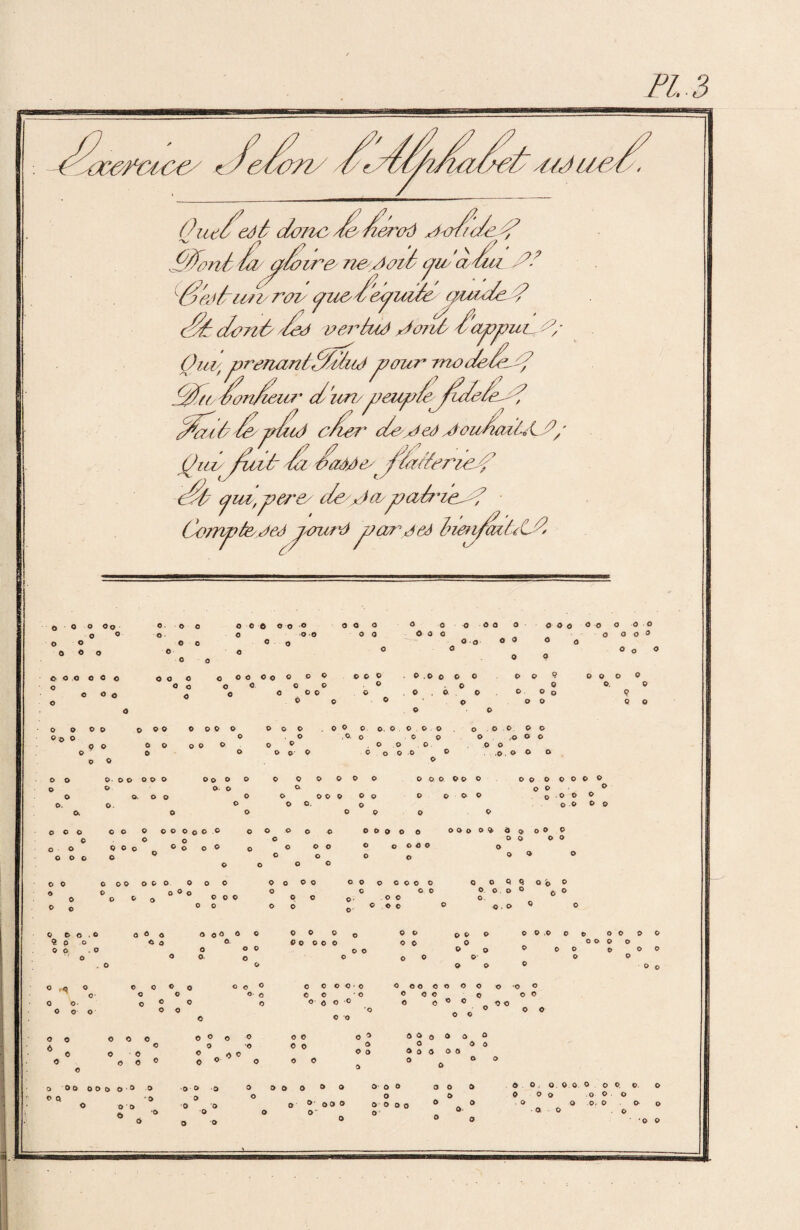 Pl. 3
Exercice Selon l'Alphabet usuel.
Quel est donc le héros solide,
Dont la gloire ne soit qu'à lui ?
C'est un roi que l'équité guide,
Et dont les vertus sont l'appui ;
Qui, prenant Titus pour modele,
Du bonheur d'un peuple fidele,
Fait le plus cher de ses souhaits ;
Qui fuit la basse flatterie,
Et qui, pere de sa patrie,
Compte ses jours par ses bienfaits.